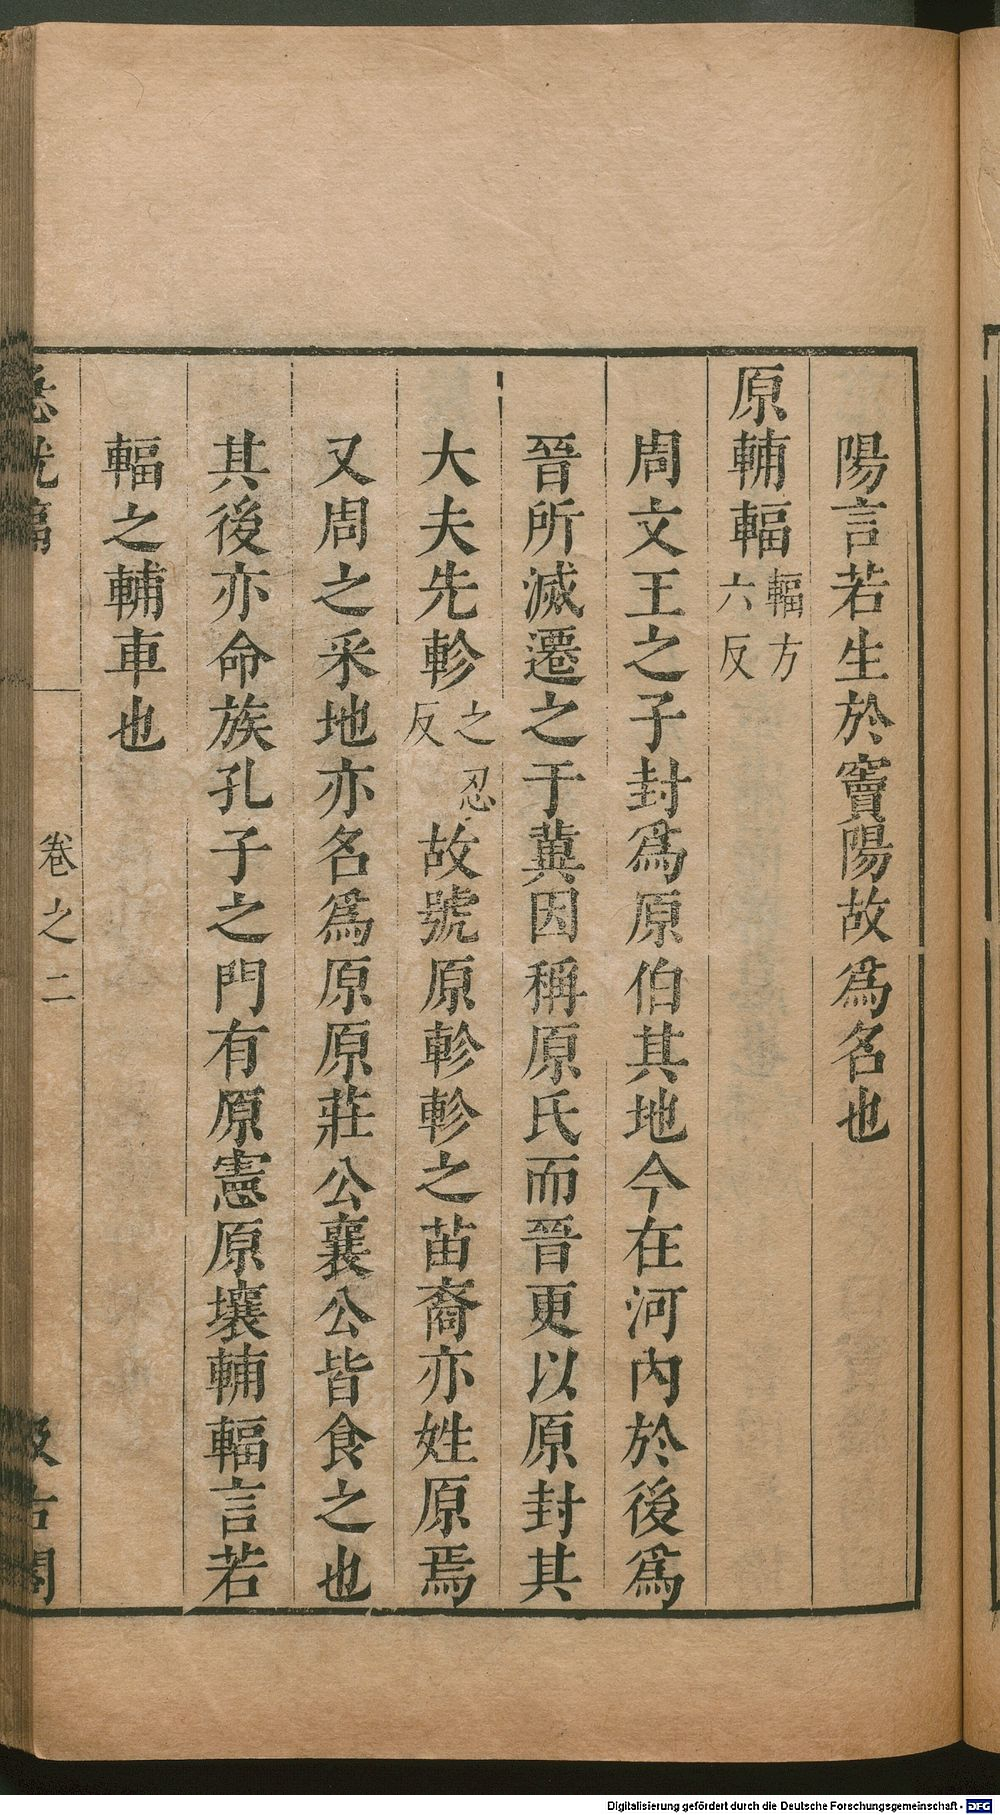 陽言若生於竇陽故爲名也
原輔輻輻方六反
周文王之子封爲原伯其地今在河內於後爲
晉所滅遷之于冀因稱原氏而晉更以原封其
大夫先軫之忍反故號原軫軫之苗裔亦姓原焉
又周之采地亦名爲原原莊公襄公皆食之也
其後亦命族孔子之門有原憲原壤輔輻言若
輻之輔車也
急就篇
卷之二
汲古閣
Digitalisierung gefördert durch die Deutsche Forschungsgemeinschaft - DFG